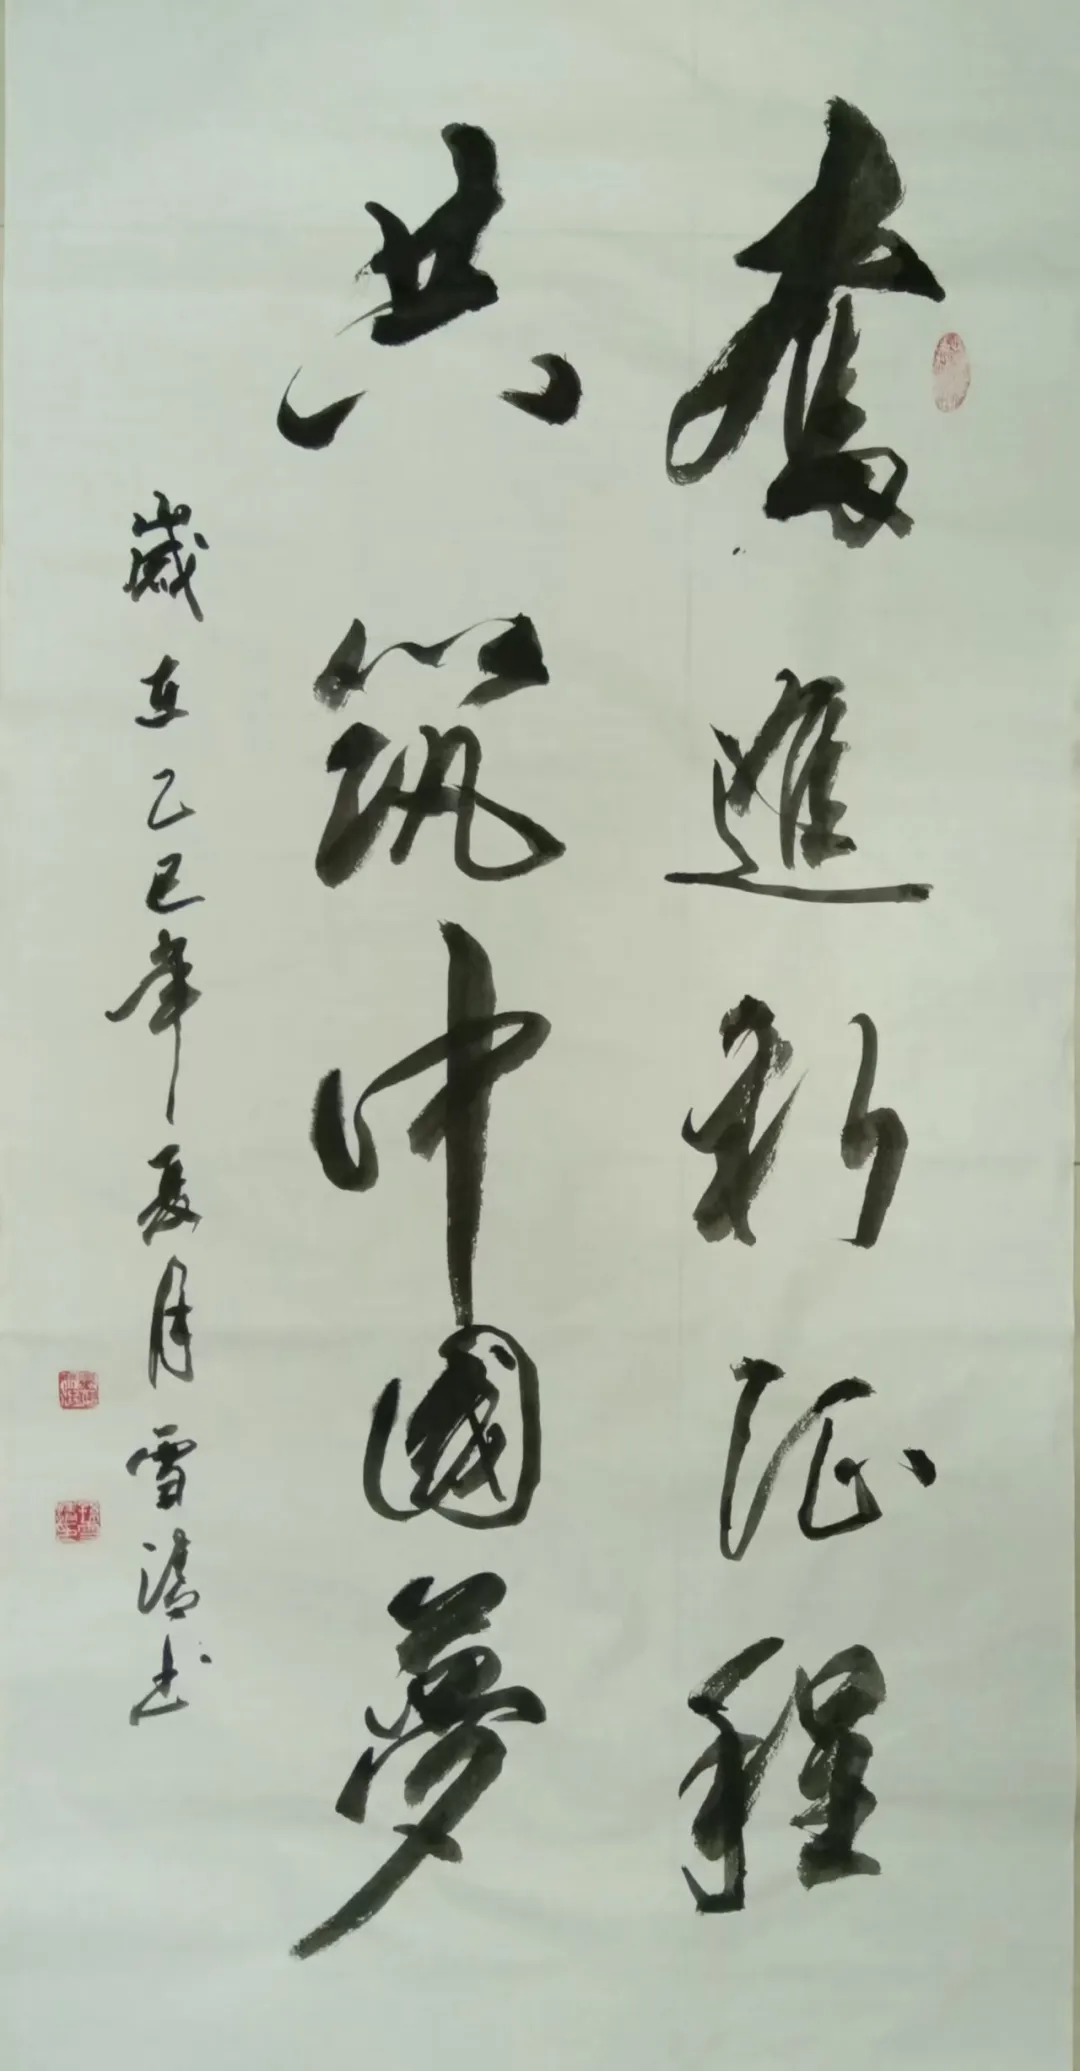 奮進新征程
共筑中國夢
歲在乙巳年夏月雪濤书